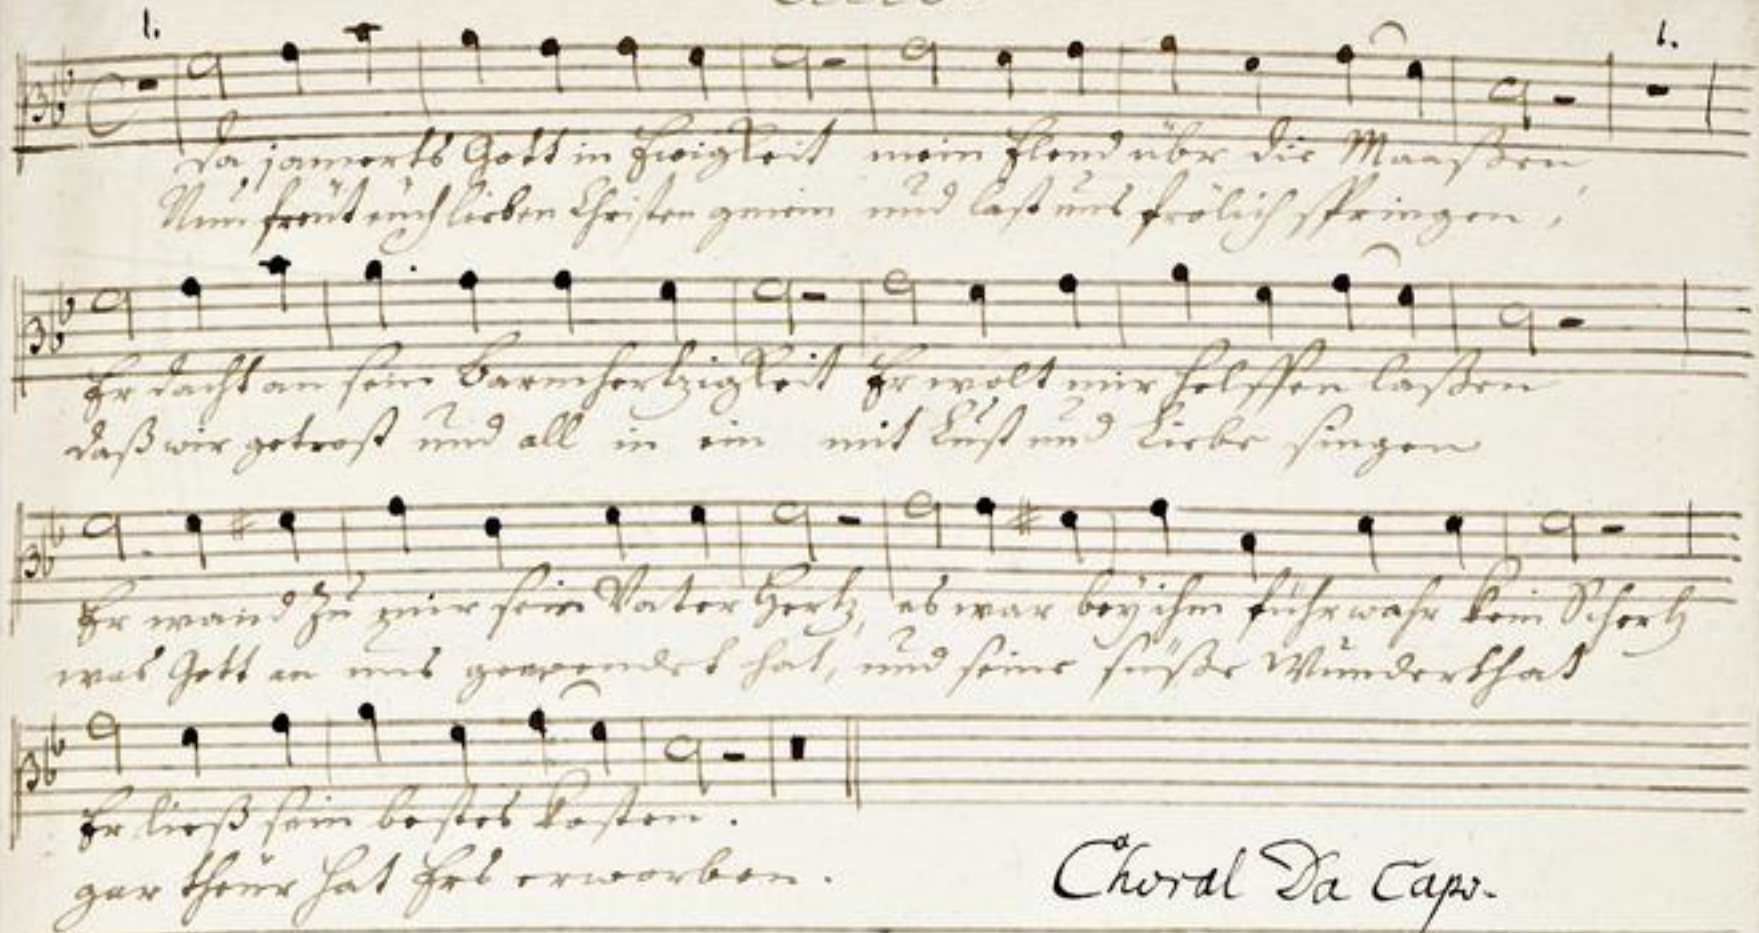 1. 1.
Da jamerts Gott in Ewigkeit mein Elend übr die Maaßen
Nun freüt eüch lieben Christen gmein und last uns frölich springen,
Er dacht an sein Barmhertzigkeit Er wolt mir helffen laßen
daß wir getrost und all in ein mit Lust und Liebe singen
Er wand zu mir sein Vater Hertz, es war bey ihm führwahr kein Schertz
was Gott an uns gewendet hat, und seine süße Wunderthat
Er ließ sein bestes kosten.
gar theür hat Ers erworben.
Choral Da Capo.